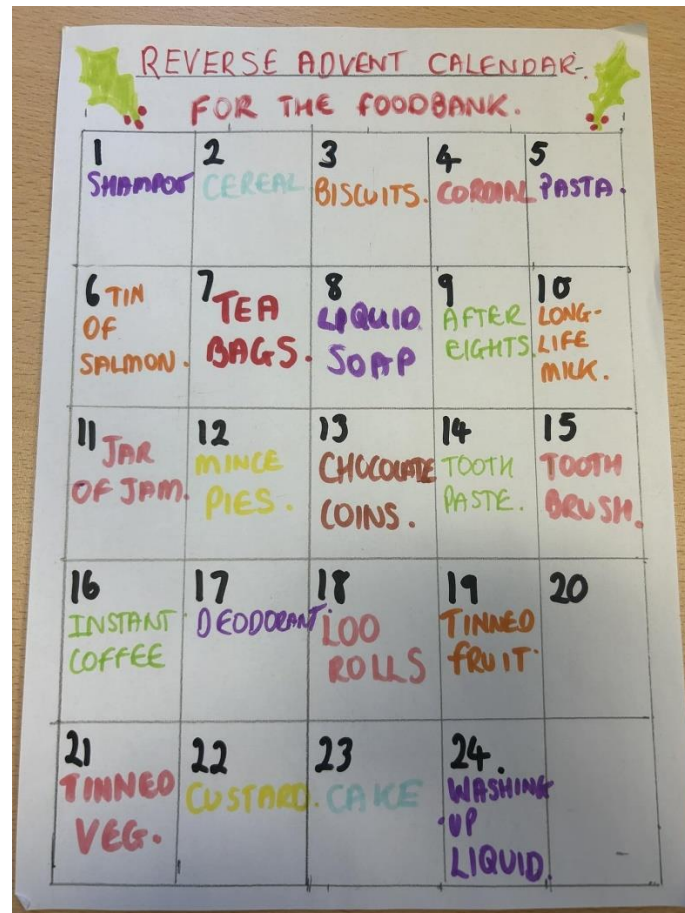 REVERSE ADVENT CALENDAR
FOR THE FOODBANK.
1
SHAMPOO
2
CEREAL
3
BISCUITS.
4
CORDIAL
5
PASTA.
6 TIN
OF
SALMON.
7 TEA
BAGS.
8
LIQUID
SOAP
9
AFTER
EIGHTS
10
LONG-
LIFE
MILK.
11 JAR
OF JAM.
12
MINCE
PIES.
13
CHOCOLATE
COINS.
14
TOOTH
PASTE.
15
TOOTH
BRUSH.
16
INSTANT
COFFEE
17
DEODORANT.
18
LOO
ROLLS
19
TINNED
FRUIT.
20
21
TINNED
VEG.
22
CUSTARD.
23
CAKE
24.
WASHING
UP
LIQUID.